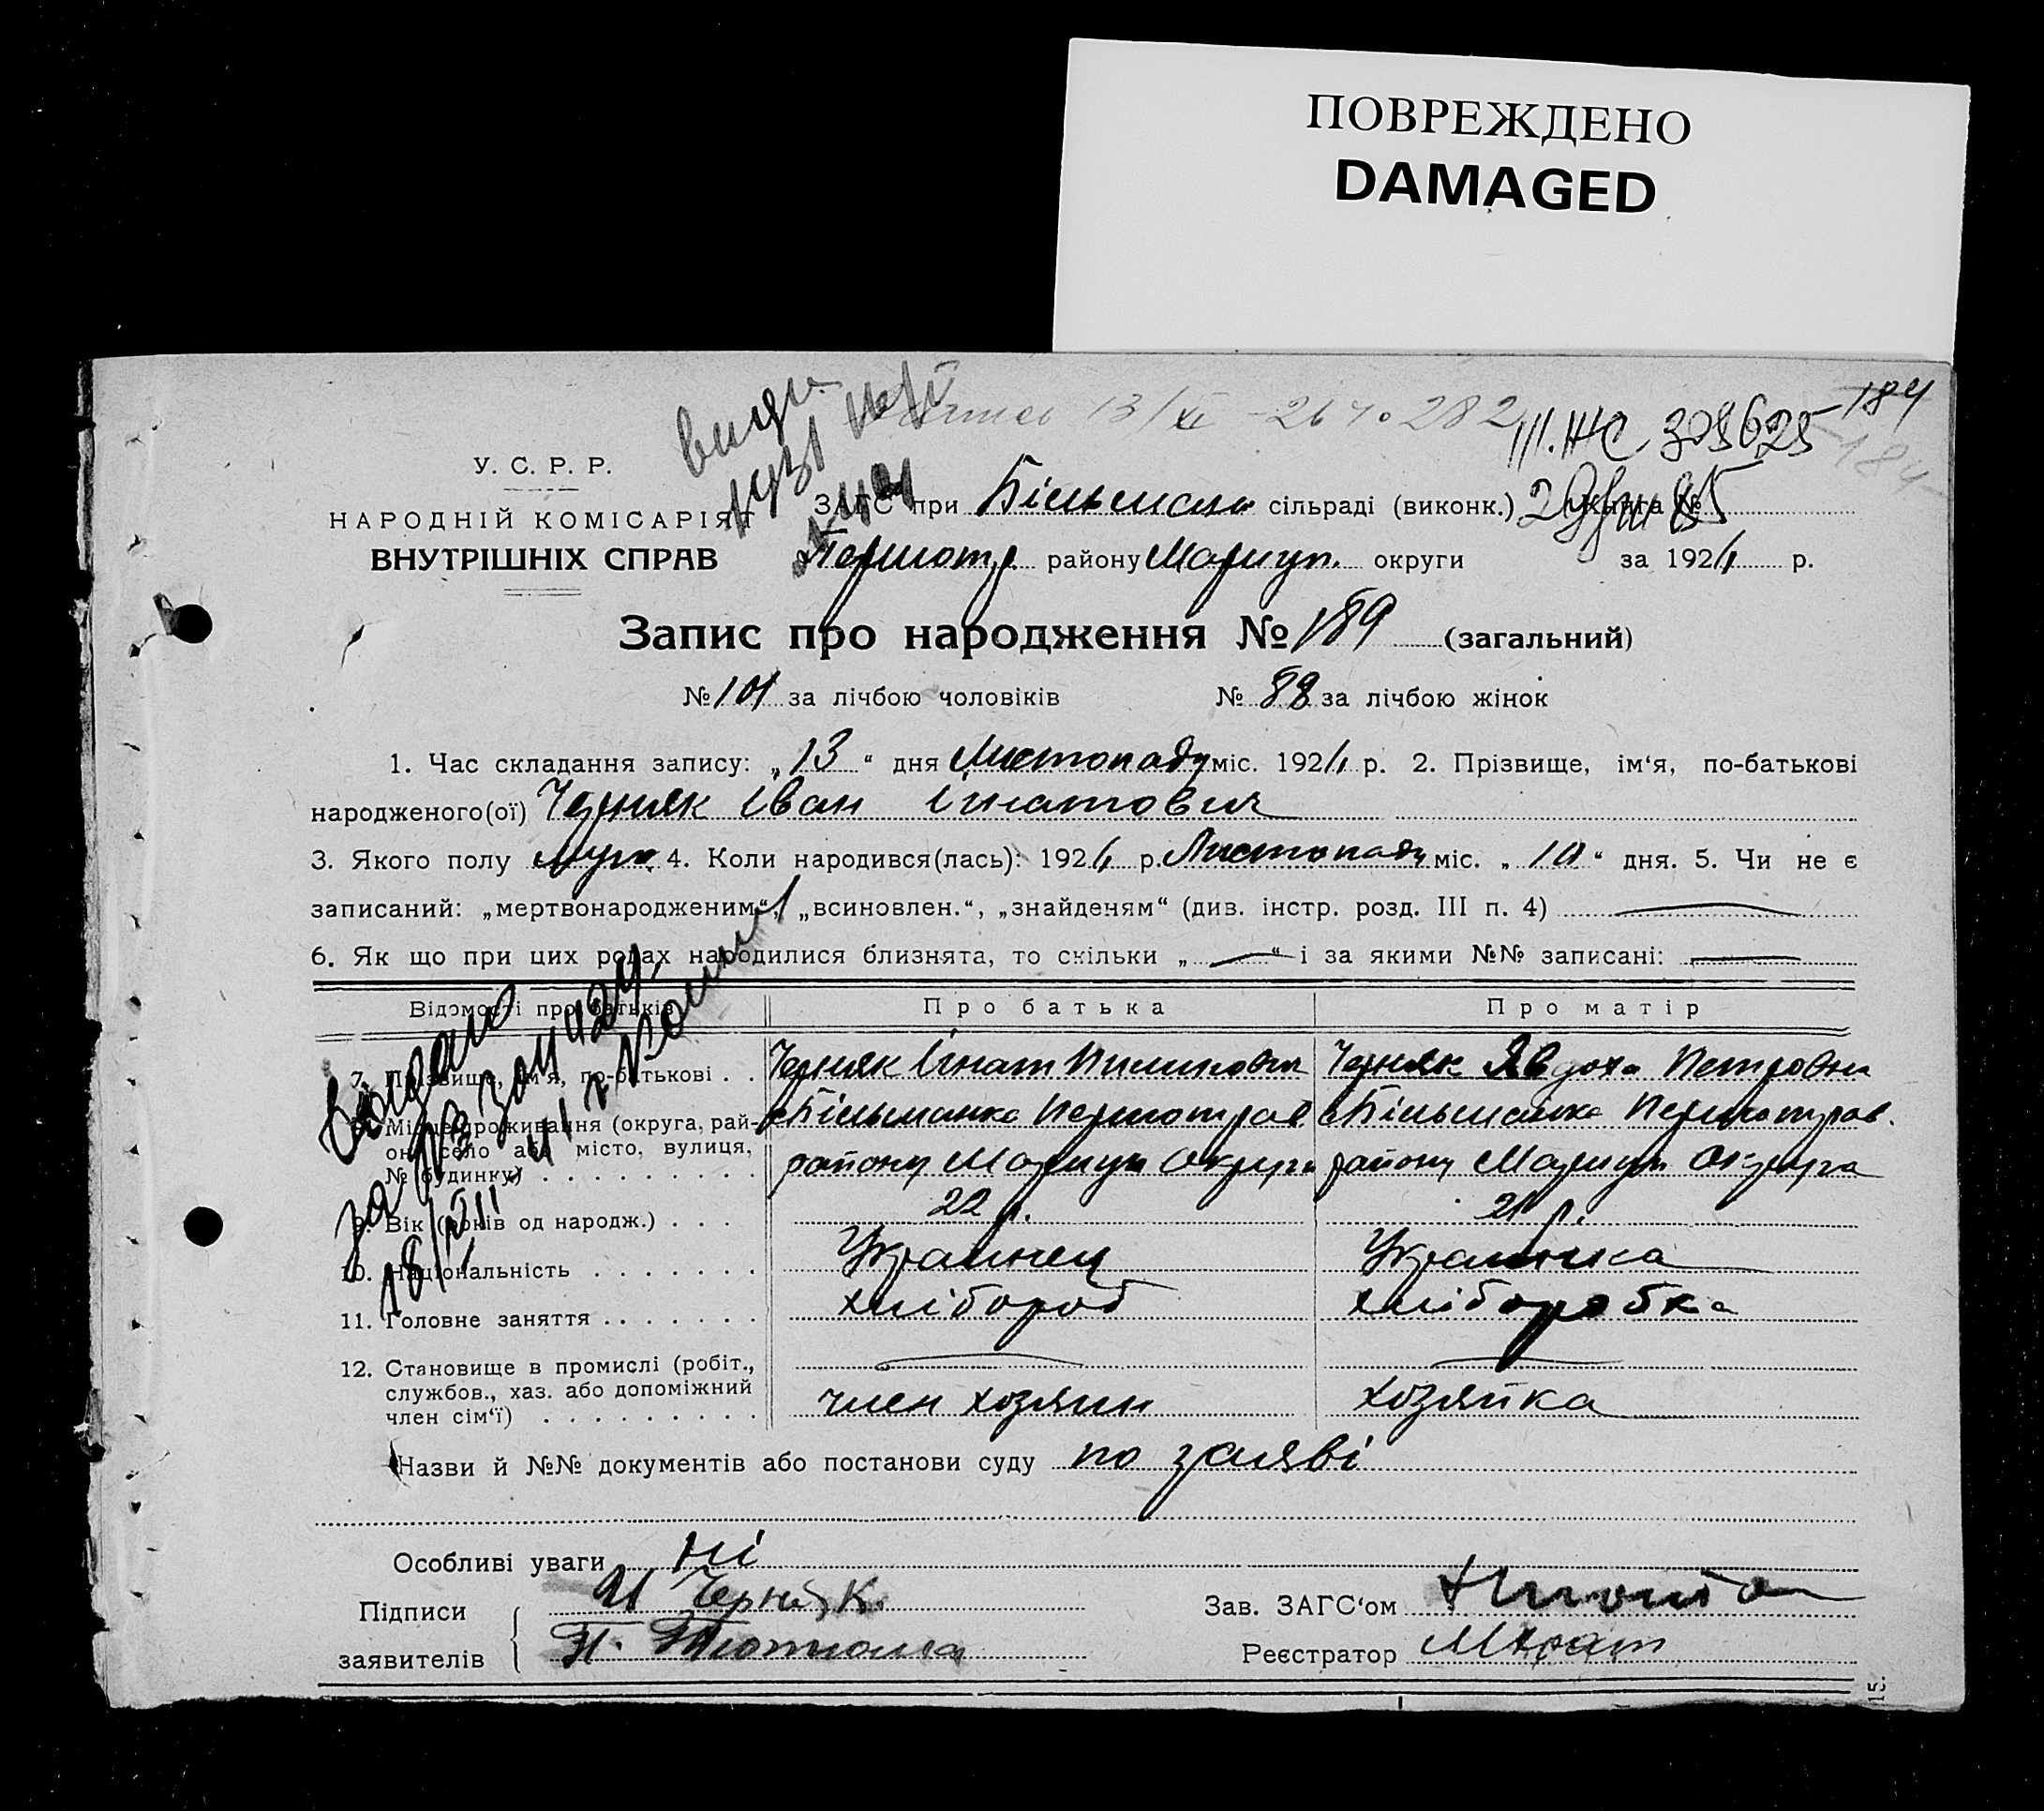 ПОВРЕЖДЕНО
DAMAGED
13/XI - 26 282
184
III. ЖС 308625
184
У. С. Р. Р.
НАРОДНІЙ КОМІСАРІЯТ
ВНУТРІШНІХ СПРАВ
ЗАГС при сільраді (виконк.) Книга №
Першотр району Мариуп. округи за 1926 р.
Запис про народження № 189 (загальний)
№ 101 за лічбою чоловіків № 88 за лічбою жінок
1. Час складання запису: „13“ дня Листопаду міс. 1926 р. 2. Прізвище, ім'я, по-батькові
народженого(ої) Черняк Іван Ігнатович
3. Якого полу муж. 4. Коли народився(лась): 1926 р. Листопаду міс. „10“ дня. 5. Чи не є
записаний: „мертвонародженим“, „всиновлен.“, „знайденям“ (див. інстр. розд. III п. 4) —
6. Як що при цих родах народилися близнята, то скільки „—“ і за якими №№ записані: —
Відомості про батьків Про батька Про матір
7. Прізвище, ім'я, по-батькові . . Черняк Ігнат Черняк Явдоха Петровна
8. Місце проживання (округа, рай- с Більманка Першотрав. с Більманка Першотрав.
он, село або місто, вулиця, району Мариуп Округи району Мариуп Округа
№ будинку) . . . . . . . . .
9. Вік (років од народж.) . . . 22 р. 21 р.
10. Національність . . . . . . . Українец Українка
11. Головне заняття . . . . . . . хлібороб хліборобка
12. Становище в промислі (робіт., — —
службов., хаз. або допоміжний член хозяин хозяйка
член сім'ї) . . . . . . . . .
Назви й №№ документів або постанови суду по заяві
Особливі уваги ні
Підписи И Черняк. Зав. ЗАГС'ом
заявителів П. Реєстратор
15.